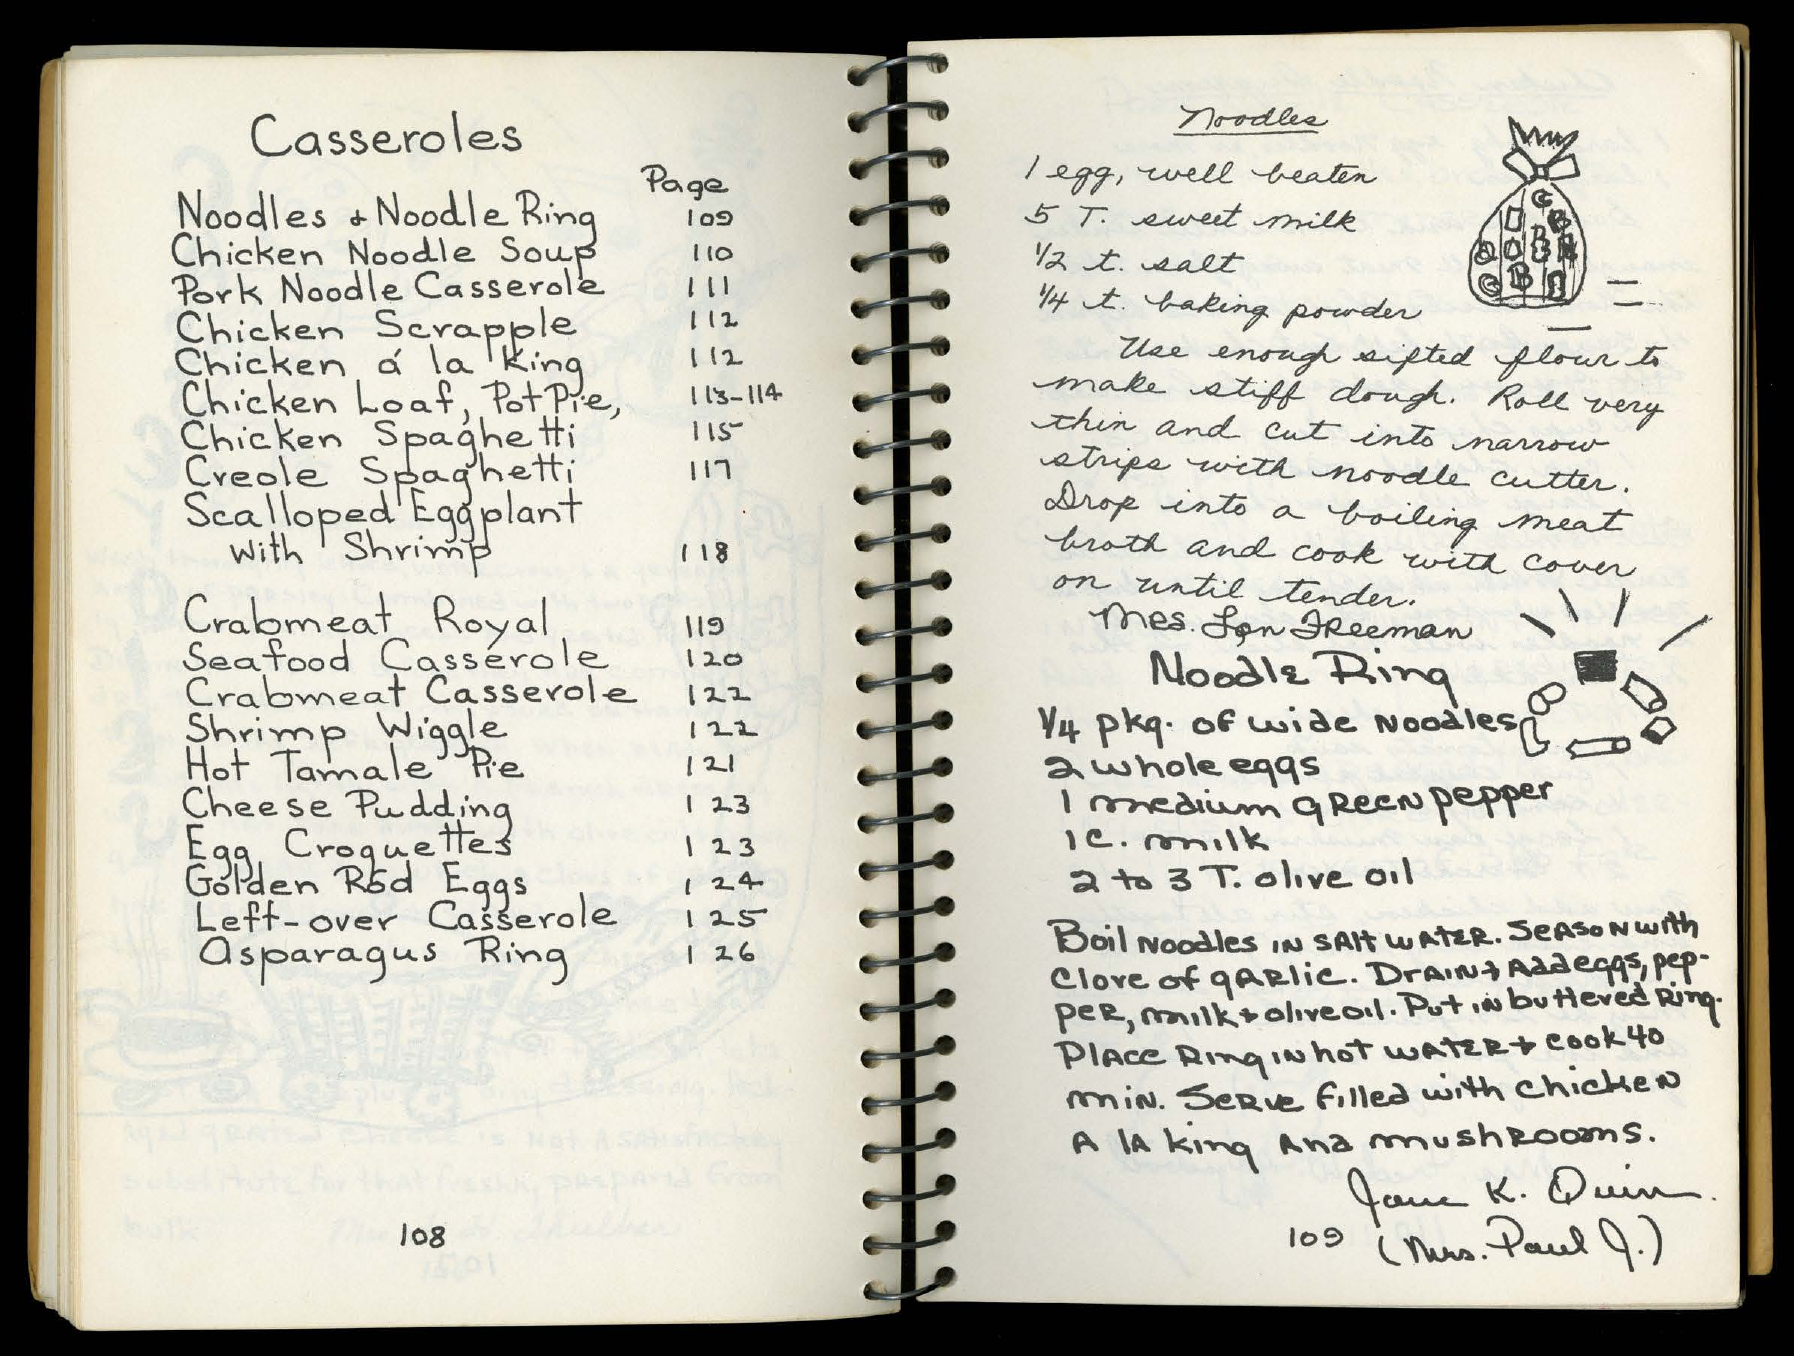 Casseroles
Page
Noodles & Noodle Ring 109
Chicken Noodle Soup 110
Pork Noodle Casserole 111
Chicken Scrapple 112
Chicken á la King 112
Chicken Loaf, Pot Pie, 113-114
Chicken Spaghetti 115
Creole Spaghetti 117
Scalloped Eggplant
with Shrimp 118
Crabmeat Royal 119
Seafood Casserole 120
Crabmeat Casserole 122
Shrimp Wiggle 122
Hot Tamale Pie 121
Cheese Pudding 123
Egg Croquettes 123
Golden Rod Eggs 124
Left-over Casserole 125
Asparagus Ring 126
108
Noodles
1 egg, well beaten
5 T. sweet milk
1/2 t. salt
1/4 t. baking powder
Use enough sifted flour to
make stiff dough. Roll very
thin and cut into narrow
strips with noodle cutter.
Drop into a boiling meat
broth and cook with cover
on until tender.
Mrs. Lon Freeman
Noodle Ring
1/4 pkg. of wide Noodles
2 whole eggs
1 medium green pepper
1 c. milk
2 to 3 T. olive oil
Boil Noodles in salt water. Season with
Clove of garlic. Drain & Add eggs, pep-
per, milk & olive oil. Put in buttered Ring.
Place Ring in hot water & cook 40
min. Serve filled with chicken
A la king and mushrooms.
Jane K. Quinn.
109 (Mrs. Paul J.)